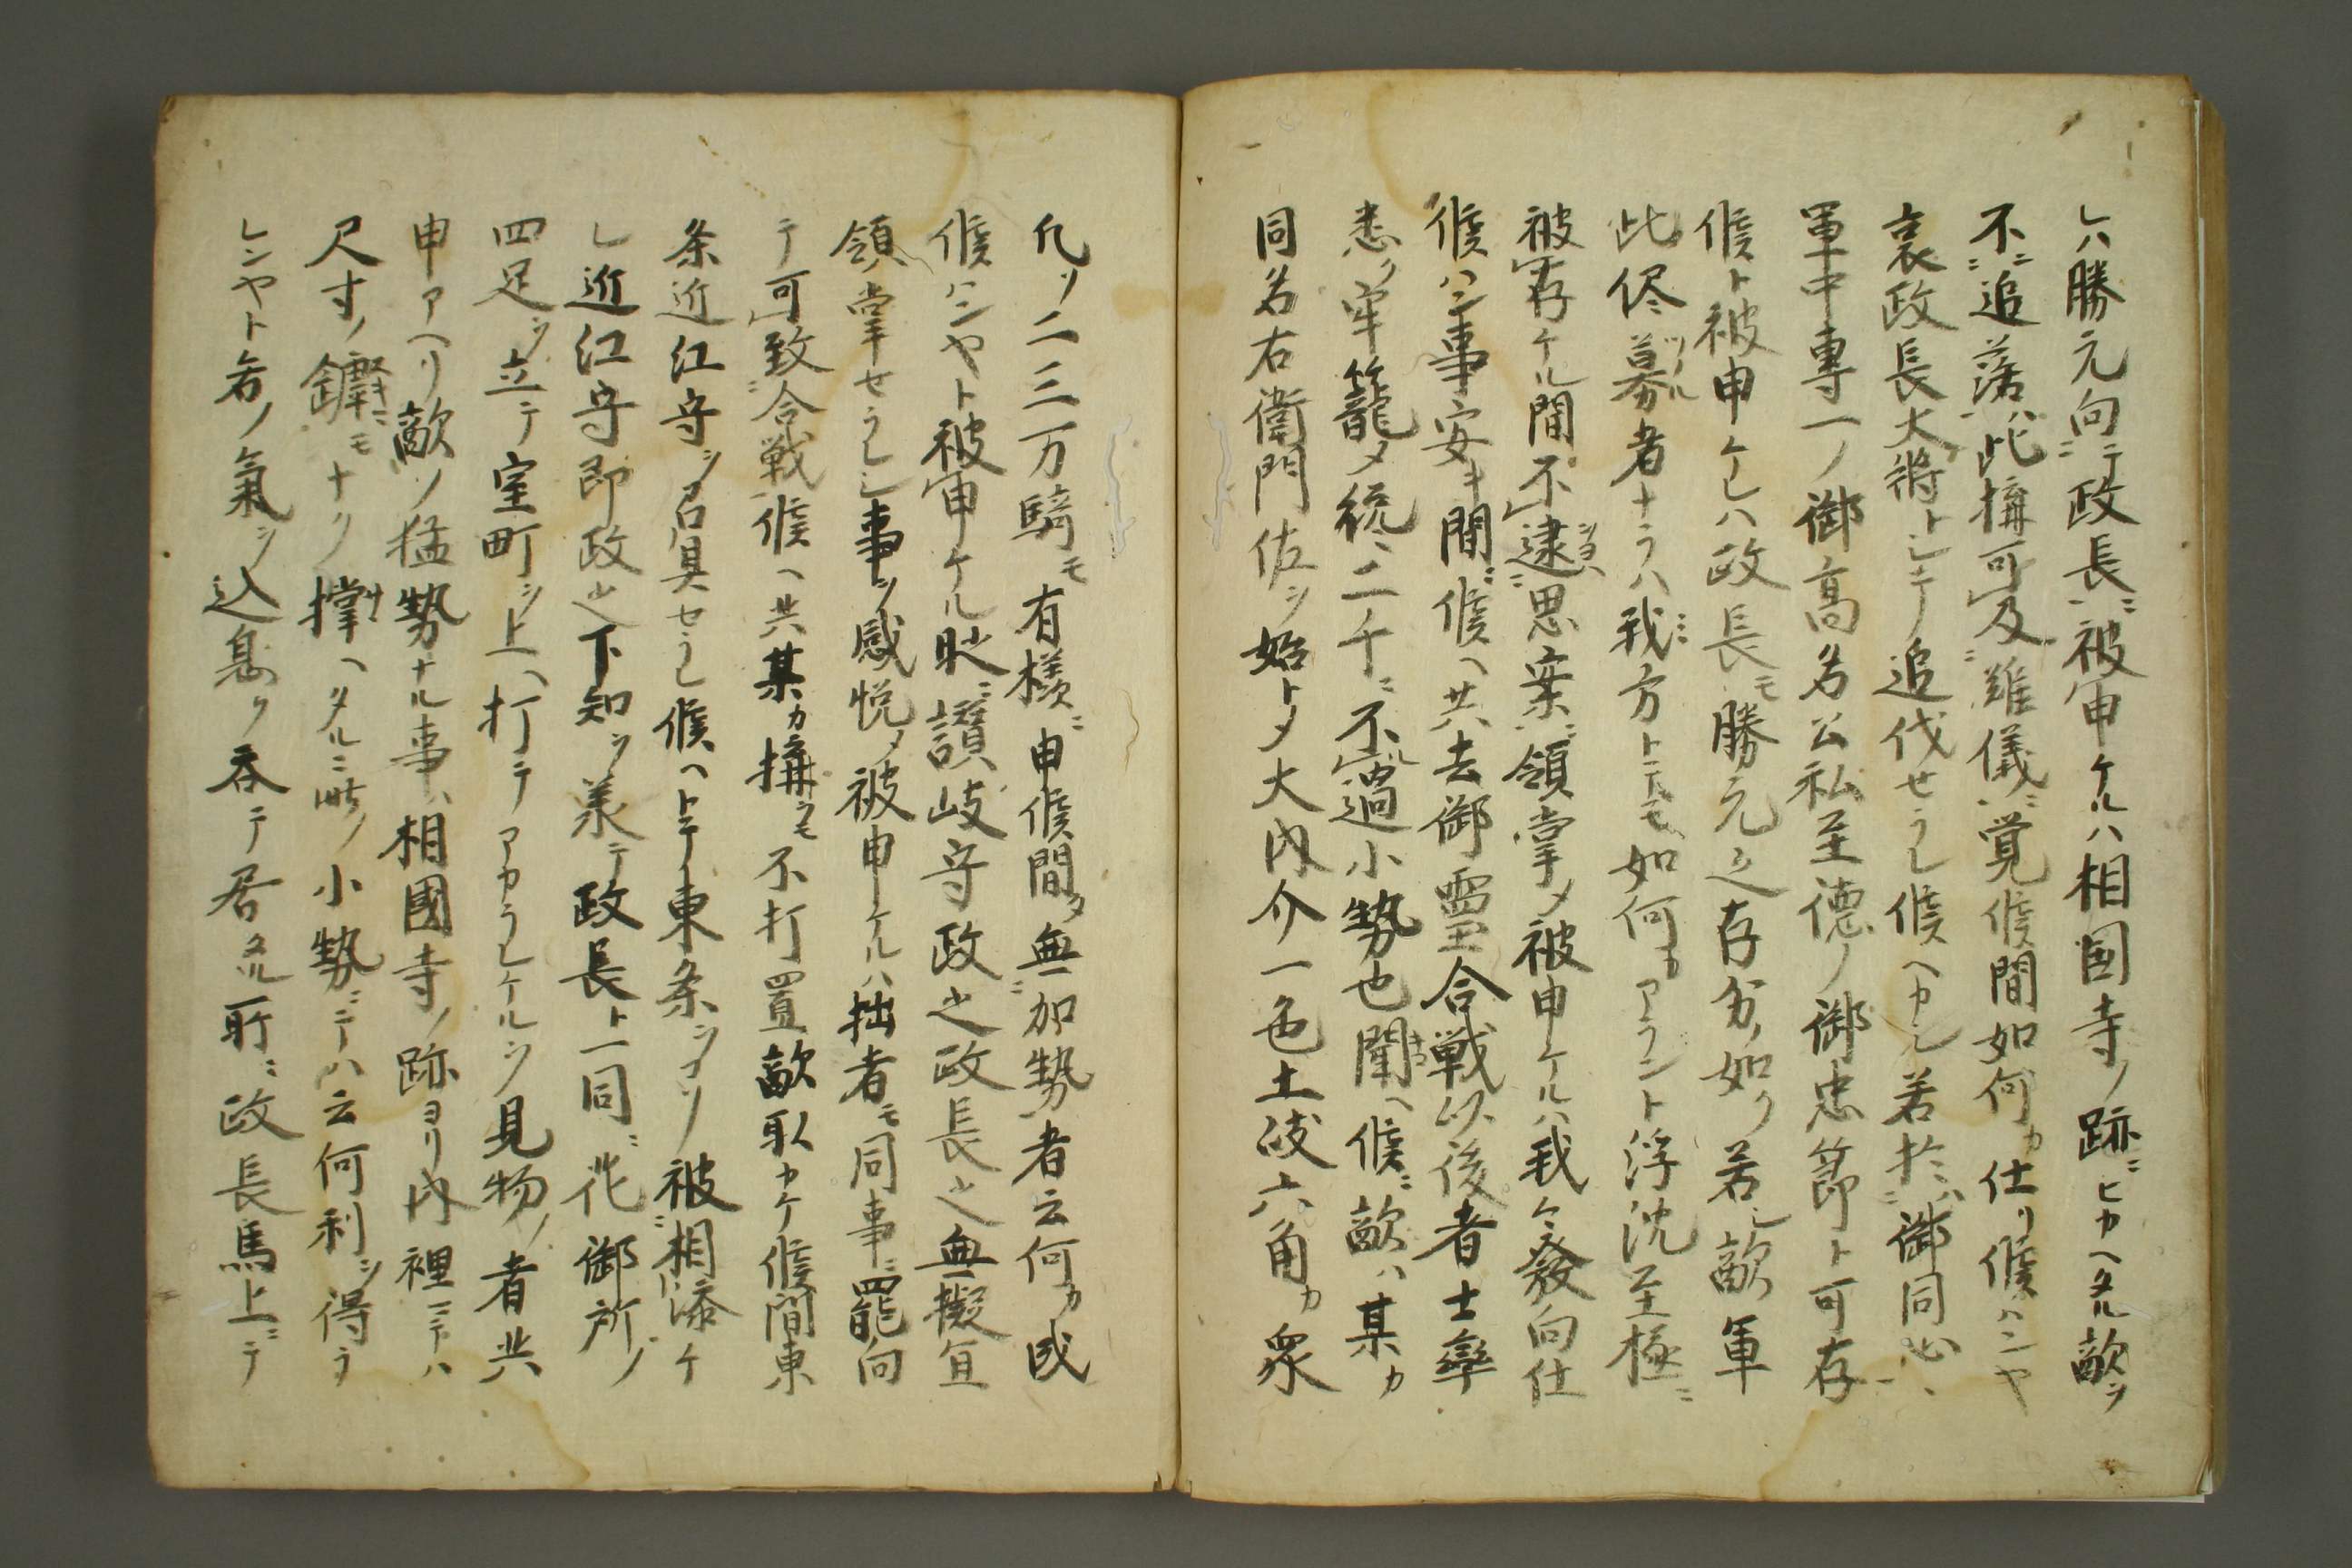 レハ勝元向テ政長ニ被申ケルハ相国寺ノ跡ニヒカヘタル敵ヲ
不追落ハ此搆可及難儀ニ覚候間如何カ仕リ候ハンヤ
哀政長大将トシテ追伐せラレ候ヘカシ若於御同心ハ
軍中専一ノ御高名公私至徳ノ御忠節ト可存
候ト被申ケレハ政長モ勝元之存分ノ如ク若シ敵軍
此侭募ル者ナラハ我方トテモ如何カアラント浮沈至極ニ
被存ケル間不逮思案ニ領掌メ被申ケルハ我今發向仕
候ハン事安キ間ニ候ヘ共去御霊合戦以後者士卒
悉ク牢籠メ統ニ二千ニ不過小勢也聞ヘ候敵ハ某カ
同名右衛門佐ヲ始トメ大内介一色土岐六角カ衆
凡ソ二三万騎モ有様ニ申候間無加勢者云何カ成
候ハンヤト被申ケル時讃岐守政之政長之無擬宜
領掌せラレシ事ヲ感悦メ被申ケルハ拙者モ同事ニ罷向
テ可致合戦候ヘ共某カ搆ヲモ不打置敵取カケ候間東
条近江守ヲ召具せラレ候ヘトテ東条ヲソ被相添ケ
レ近江守即政之下知ヲ美テ政長ト一同ニ花御所ノ
四足ヲ立テ室町ヲ上ヘ打テアカラレケルヲ見物ノ者共
申アヘリ敵ノ猛勢ナル事ハ相國寺ノ跡ヨリ内裡ニテハ
尺寸ノ鏬モナク搆ヘタルニ此ノ小勢ニテハ云何利ヲ得ラ
レンヤト各ノ氣ヲ込息ヲ呑テ居タル所ニ政長馬上ニテ